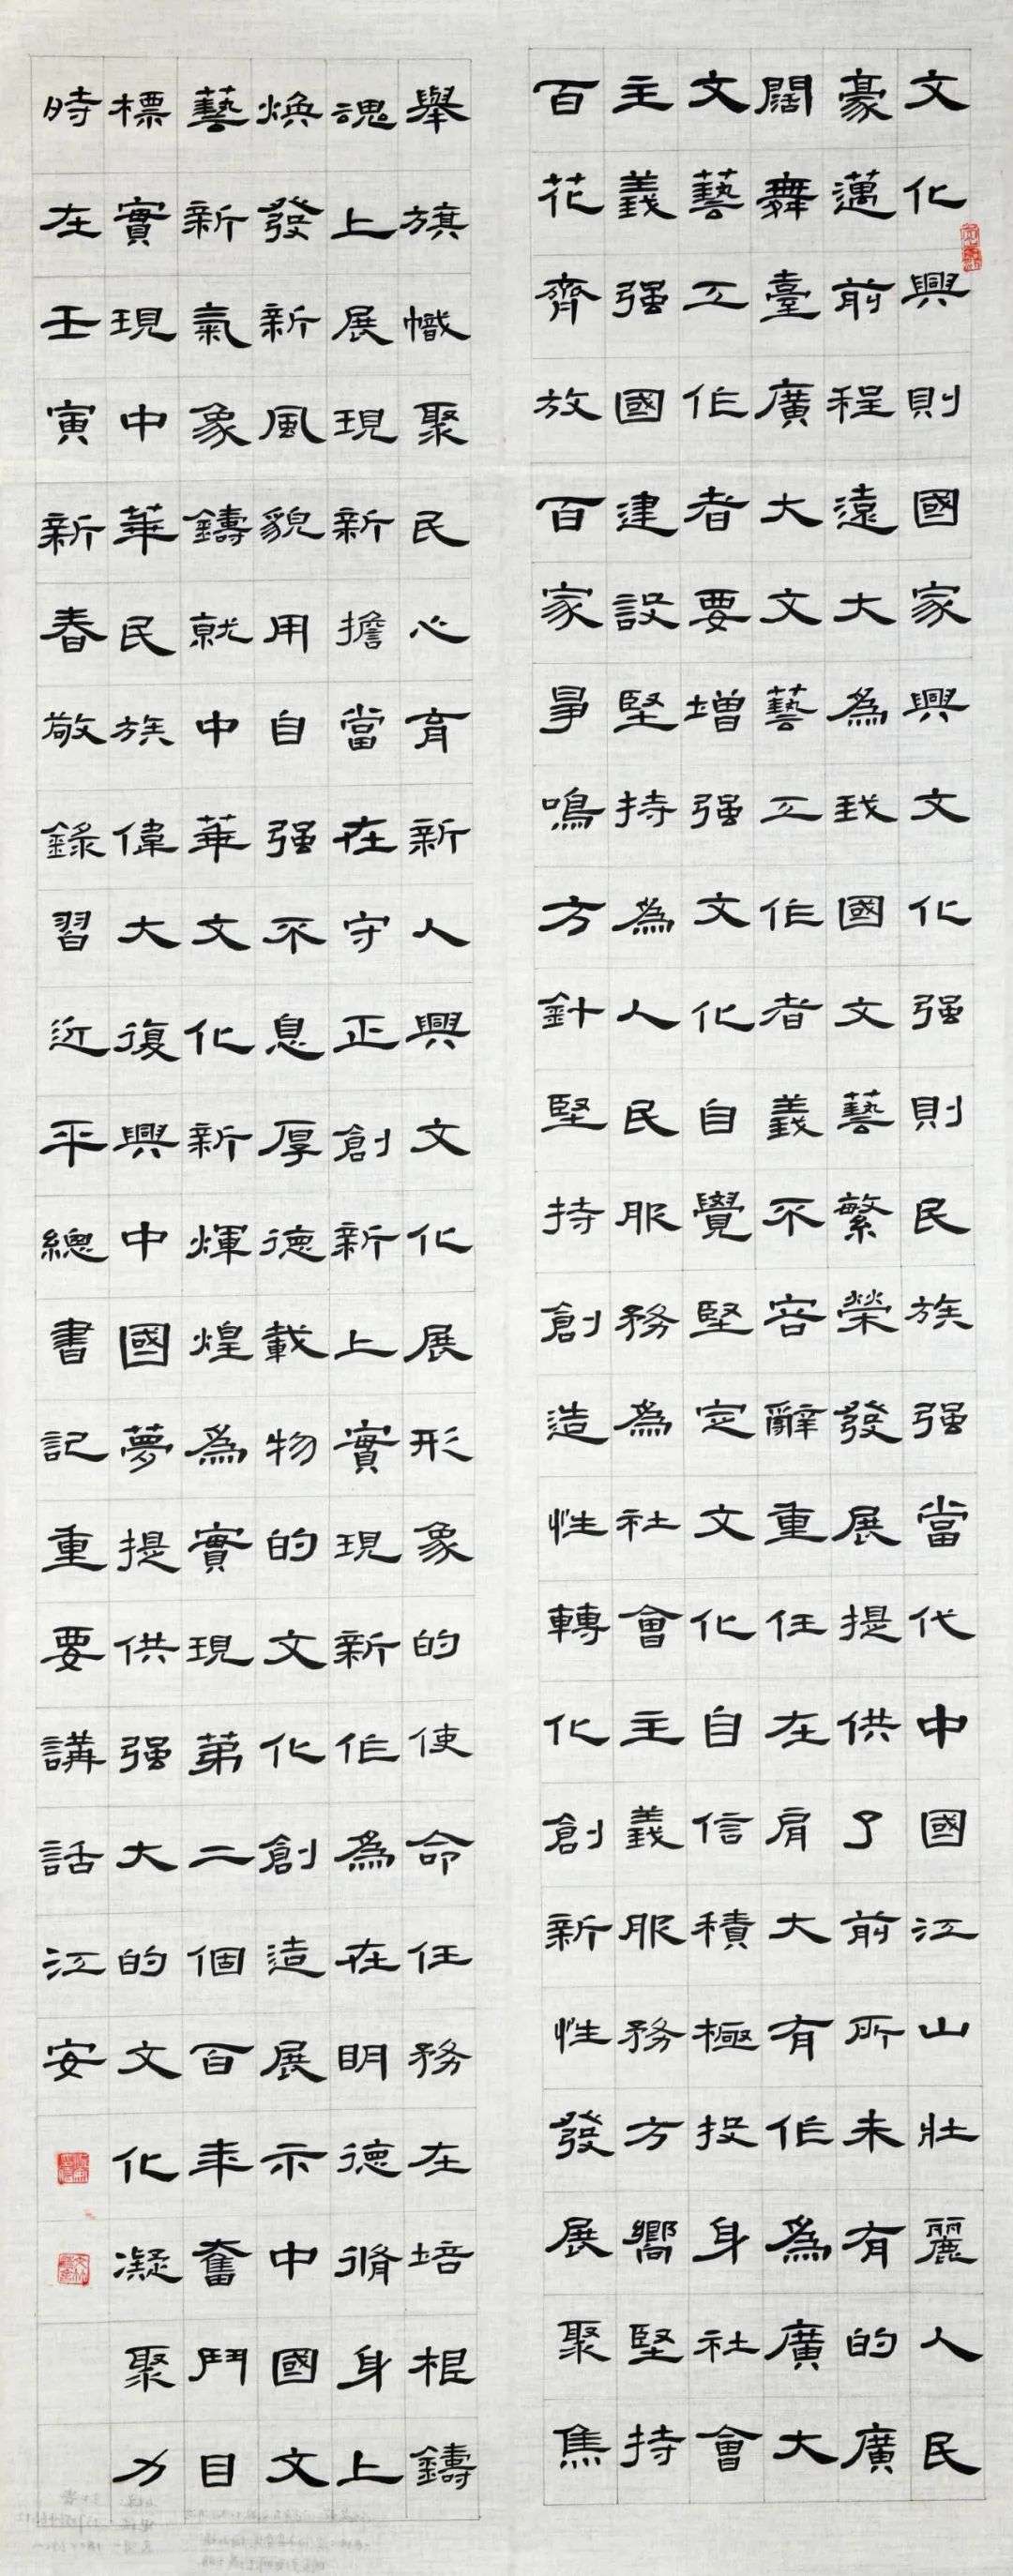 文化興則國家興文化强則民族强當代中國江山壯麗人民
豪邁前程遠大為我國文藝繁榮發展提供了前所未有的廣
闊舞臺廣大文藝工作者義不容辭重任在肩大有作為廣大
文藝工作者要增强文化自覺堅定文化自信積極投身社會
主義强國建設堅持為人民服務為社會主義服務方嚮堅持
百花齊放百家爭鳴方針堅持創造性轉化創新性發展聚焦
舉旗幟聚民心育新人興文化展形象的使命任務在培根鑄
魂上展現新擔當在守正創新上實現新作為在明德脩身上
煥發新風貌用自强不息厚德載物的文化創造展示中國文
藝新氣象鑄就中華文化新輝煌為實現第二個百年奮鬥目
標實現中華民族偉大復興中國夢提供强大的文化凝聚力
時在壬寅新春敬錄習近平總書記重要講話江安